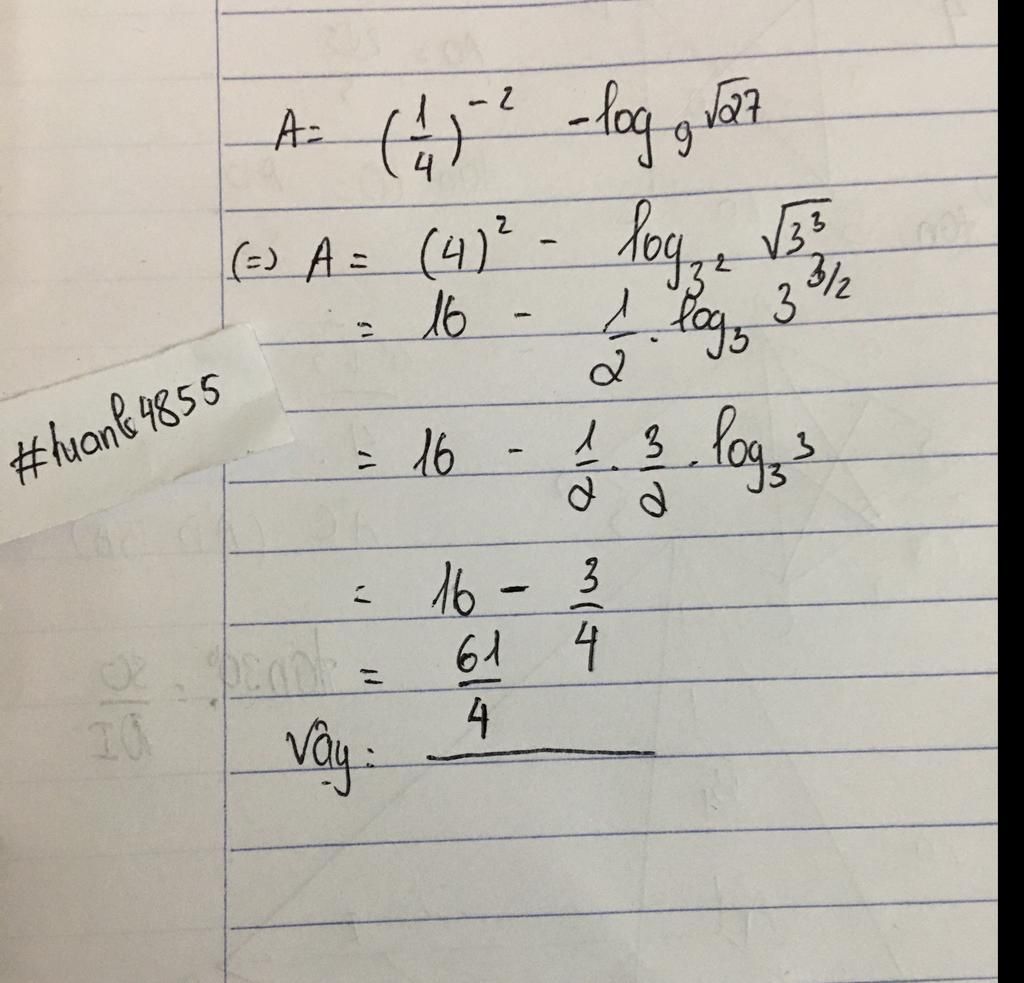 A = (1/4)^-2 - log_9 √27
(=) A = (4)^2 - log_{3^2} √3^3
= 16 - 1/2 . log_3 3^{3/2}
#tuanls4855
= 16 - 1/2 . 3/2 . log_3 3
= 16 - 3/4
= 61/4
Vậy: